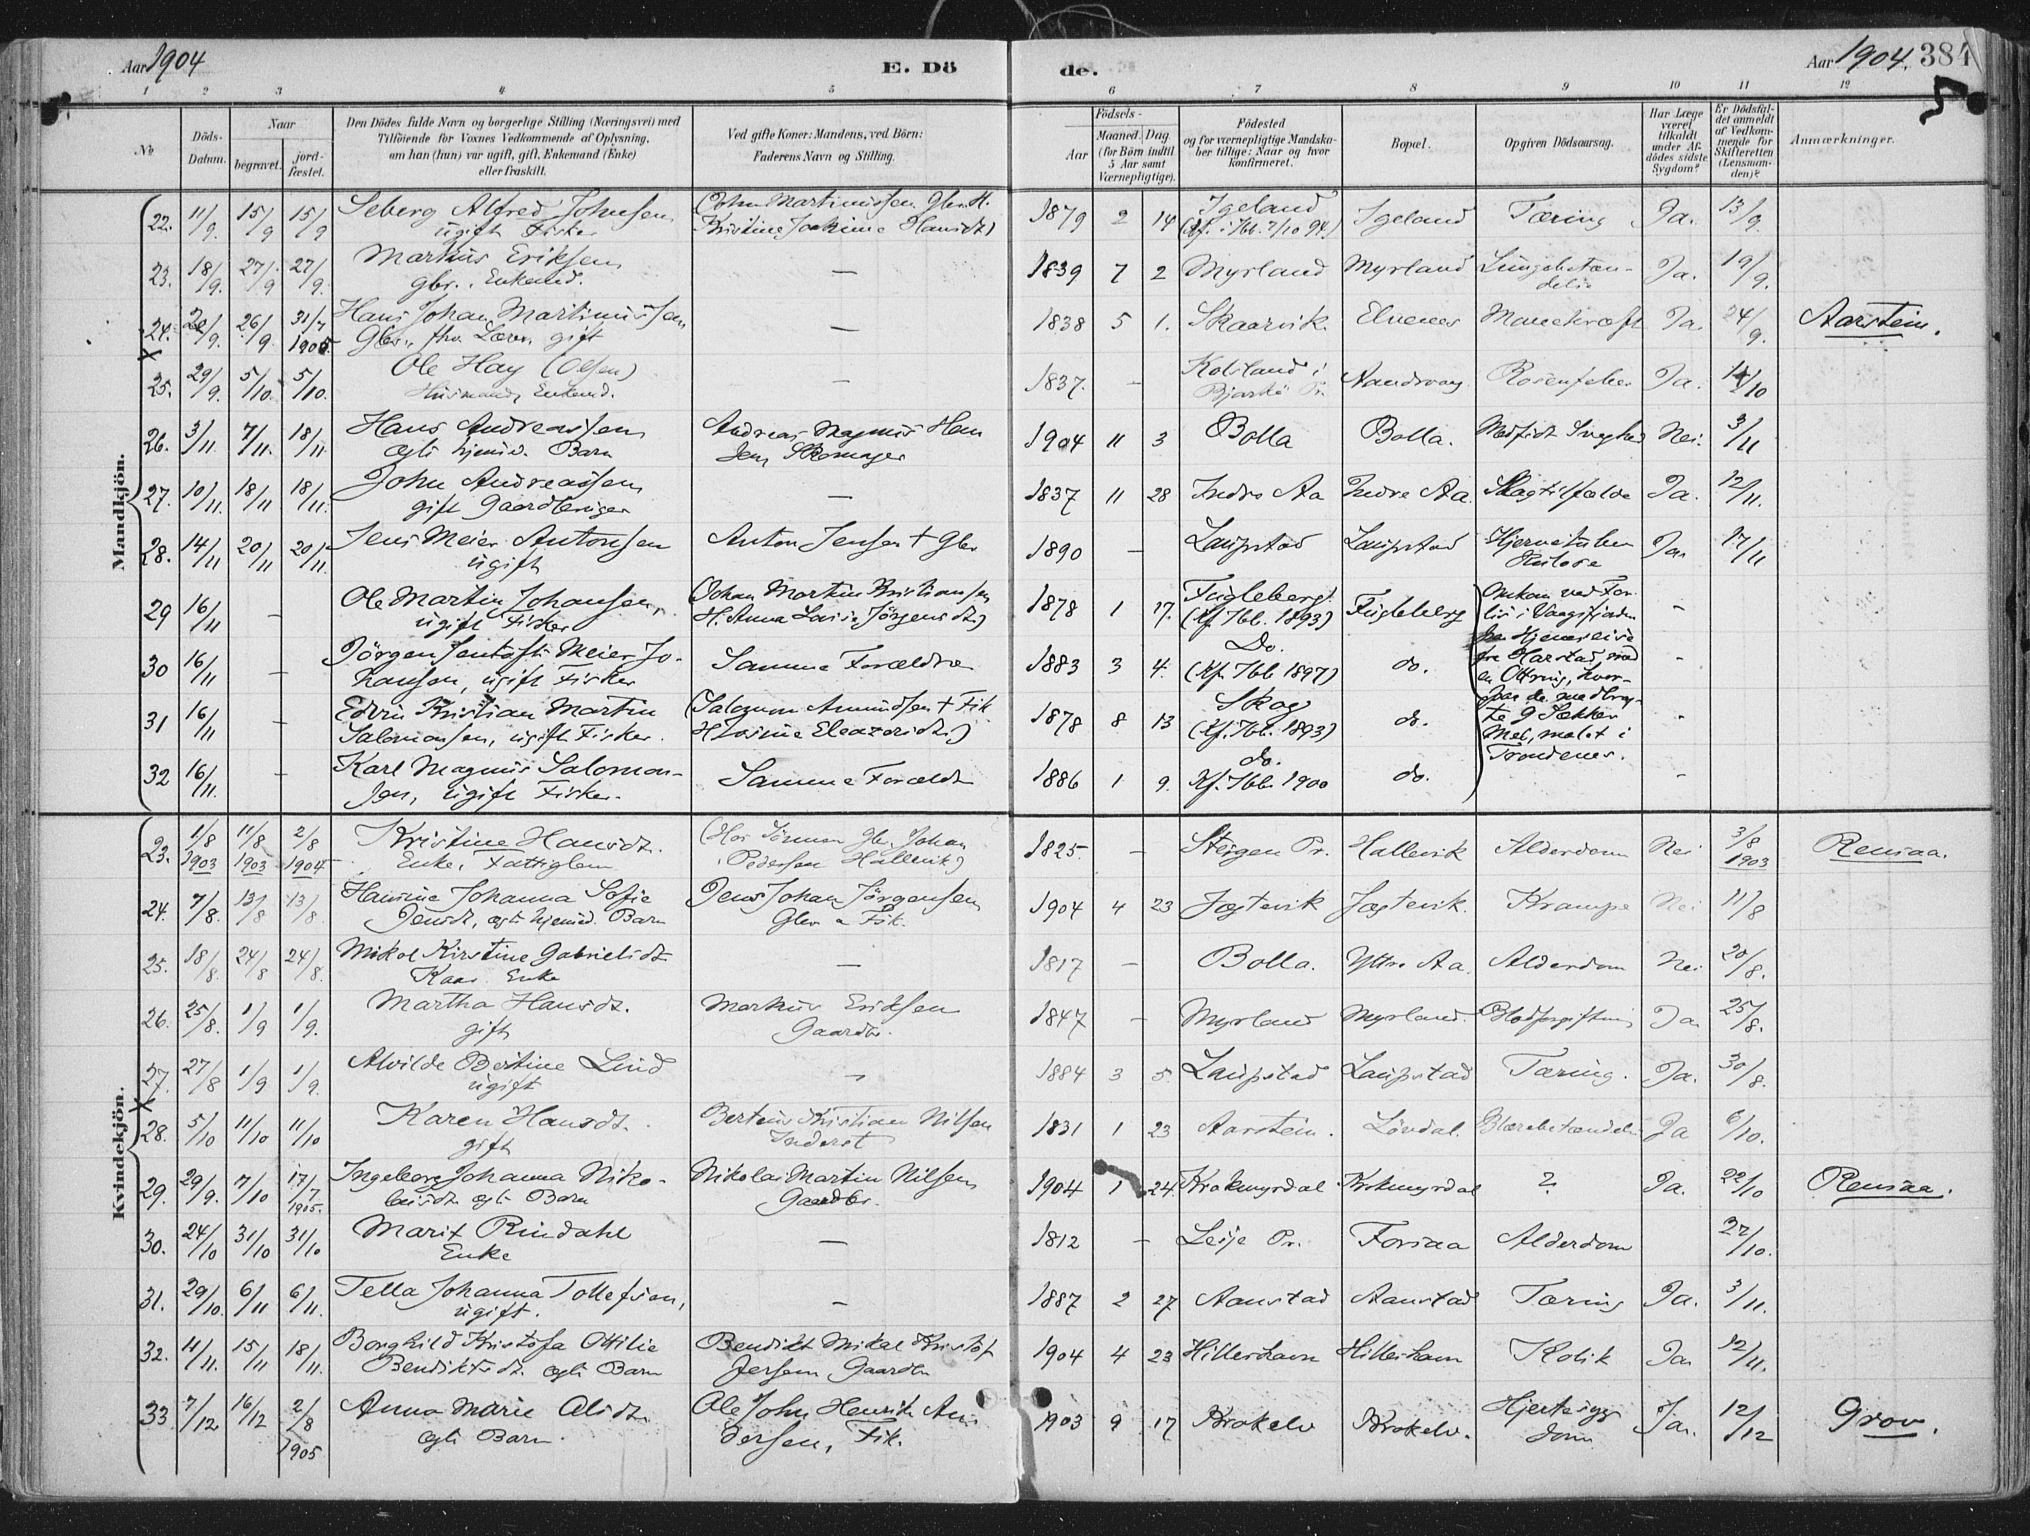 Aar 1904
E. Dö
de.
Aar 1904.
384
5
1 2 3 4 5 6 7 8 9 10 11 12
No
Döds-Datum.
Naar
begravet.
jordfæstet.
Den Dödes fulde Navn og borgerlige Stilling (Næringsvei) med
Tilföiende for Voxnes Vedkommende af Oplysning,
om han (hun) var ugift, gift, Enkemand (Enke)
eller fraskilt.
Ved gifte Koner: Mandens, ved Börn:
Faderens Navn og Stilling.
Födsels-
Aar
Maaned. Dag.
(for Börn indtil
5 Aar samt
Værnepligtige).
Födested
og for værnepligtige Mandska-
ber tillige: Naar og hvor
konfirmeret.
Bopæl.
Opgiven Dödsaarsag.
Har Læge
været
tilkaldt
under Af-
dödes sidste
Sygdom?
Er Dödsfal-
det anmeldt
af Vedkom-
mende for
Skifteretten
(Lensman-
den)?
Anmærkninger.
Mandkjön.
22. 11/9. 15/9 15/9 Seberg Alfred Johnsen John Martinussen Gbr. H. 1879 2 14 Igeland Igeland Tæring Ja. 13/9.
ugift Fisker Kristine Joakime Hansdt)
23. 18/9. 27/9 27/9. Markus Eriksen — 1839 7 2 Myrland Myrland Lungebetæn- Ja. 19/9.
gbr., Enkemd. delse
24. 26/9 31/7 1905 Hans Johan Martinussen — 1838 5 1. Skaarvik Elvenes Mavekræft Ja 24/9. Aarstein.
Gbr., fhv. Lærer, gift
25. 29/9. 5/10. 5/10. Ole Hay (Olsen) — 1837. — Kolsland i Sandvaag Rosenfeber Ja.
Husmand, Enkemd. Bjarkö Pr.
26. 3/11. 7/11. 18/11. Hans Andreassen Andreas Magnus Han 1904 11 3 Bolla Bolla. Medfödt Svaghed Nei. 3/11
egte hjemd. Barn sen Skomager
27. 10/11. 18/11 18/11. John Andreassen — 1837 11 28 Indre Aa Indre Aa. Slagtilfælde Ja. 12/11.
gift Gaardbruger
28. 14/11 20/11 20/11. Jens Meier Antonsen Anton Jensen + Gbr 1890 — Laupstad Laupstad Hjernetuber Ja 17/11
ugift kulose
29 16/11 — Ole Martin Johansen, (Johan Martin Kristiansen 1878 1 17. Fugleberg Fugleberg Omkom ved For- -
ugift Fisker H. Anna Lovise Jörgensdt.) (Kf. Ibb. 1893) lis i Vaagsfjorden
30 16/11 — Jörgen Jentoft Meier Jo- Samme Forældre 1883 3 4. Do. do. paa Hjemreise -
hansen, ugift Fisker (Kf. Ibb 1897) fra Harstad, med
31 16/11 Edvin Kristian Martin (Salomon Amundsen + Fik 1878 8 13 Skog do. en Ottring, hvor- -
Salomonsen, ugift Fisker. (Kf. Ibb. 1893) paa de medbrag-
32 16/11. — Karl Magnus Salomon- Samme Forældr 1886 1 9. do. do. te 9 Sækker -
sen, ugift Fisker. Kf. Ibb. 1900 Mel, malet i
Trondenes.
Kvindekjön.
23. 1/8 1903 11/8 1903 2/8 1904 Kristine Hansdt. (Hos Sönnen Gbr. Johan 1825. — Steigen Pr. Hallevik Alderdom Nei 3/8 1903 Rensaa.
Enke, Fattiglem Pedersen Hallevik)
24. 7/8. 13/8 13/8. Hansine Johanna Sofie Jens Johan Jörgensen 1904 4 23 Jægtevik Jægtevik. Krampe Nei 11/8
Jensdt., egte hjemd. Barn Gbr. & Fik.
25. 18/8. 24/8 24/8. Nikol Kirstine Gabrielsdt. — 1817 — Bolla. Yttre Aa. Alderdom Nei 20/8.
Kaar Enke
26. 25/8. 1/9 1/9. Martha Hansdt. Markus Eriksen 1847 — Myrland Myrland. Blodforgiftning Ja. 25/8.
gift Gaardbr.
27. 27/8 1/9 1/9. Alvilde Bertine Lind — 1884 3 5. Laupstad Laupstad Tæring. Ja. 30/8.
ugift
28. 5/10 11/10 11/10 Karen Hansdt. Berteus Kristian Nilsen 1831 1 23 Aarstein. Lövdal. Blærebetændelse Ja 6/10.
gift Inderst
29. 29/9. 7/10 17/7 1905. Ingeborg Johanna Niko- Nikolai Martin Nilsen 1904 1 24. Krokmyrdal Krokmyrdal ? Ja. 22/10 Rensaa.
laisdt. egte Barn Gaardbr.
30. 24/10 31/10 31/10 Marit Rindahl — 1812 — Lesje Pr. Forsaa Alderdom 27/10.
Enke
31. 29/10. 6/11 6/11. Tella Johanna Tollefsen, — 1887 2 27 Aanstad Aanstad Tæring Ja. 3/11.
ugift.
32. 11/11. 15/11 18/11. Borghild Kristofa Ottilie Bendikt Mikal Kristof 1904 4 23 Hilleshavn Hilleshavn Kolik Ja 12/11.
Bendiktsdt. egte Barn fersen Gaardbr
33 7/12 16/12 2/8 1905 Anna Marie Olsdt. Ole John Henrik An- 1903 9 17 Krokelv Krokelv. Hjertesyg Ja. 12/12 Grov.
egte Barn. dersen, Fik. dom